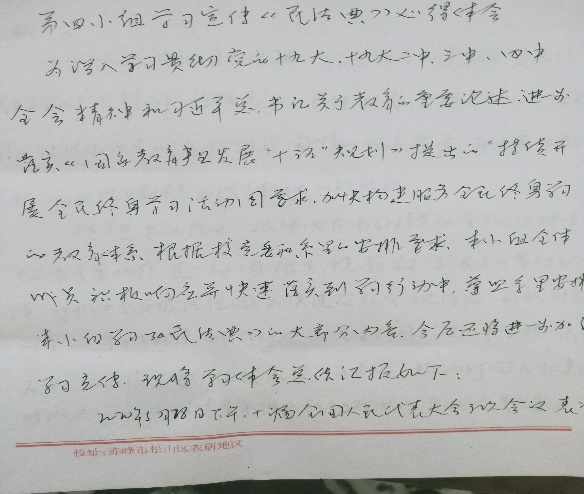 第四小组学习宣传《民法典》心得体会
为深入学习贯彻党的十九大、十九大二中、三中、四中
全会精神和习近平总书记关于教育的重要论述,进一步
落实《国家教育事业发展"十三五"规划》提出的"持续开
展全民终身学习活动"的要求,加快构建服务全民终身学习
的教育体系,根据校党委和系里的安排要求,本小组全体
成员积极响应并快速落实到学习行动中,遵照系里安排
本小组学习了《民法典》的大部分内容,今后还将进一步加
学习宣传,现将学习体会总结汇报如下:
2020年5月28日下午,十三届全国人民代表大会三次会议表
校址:赤峰市松山区农研地区